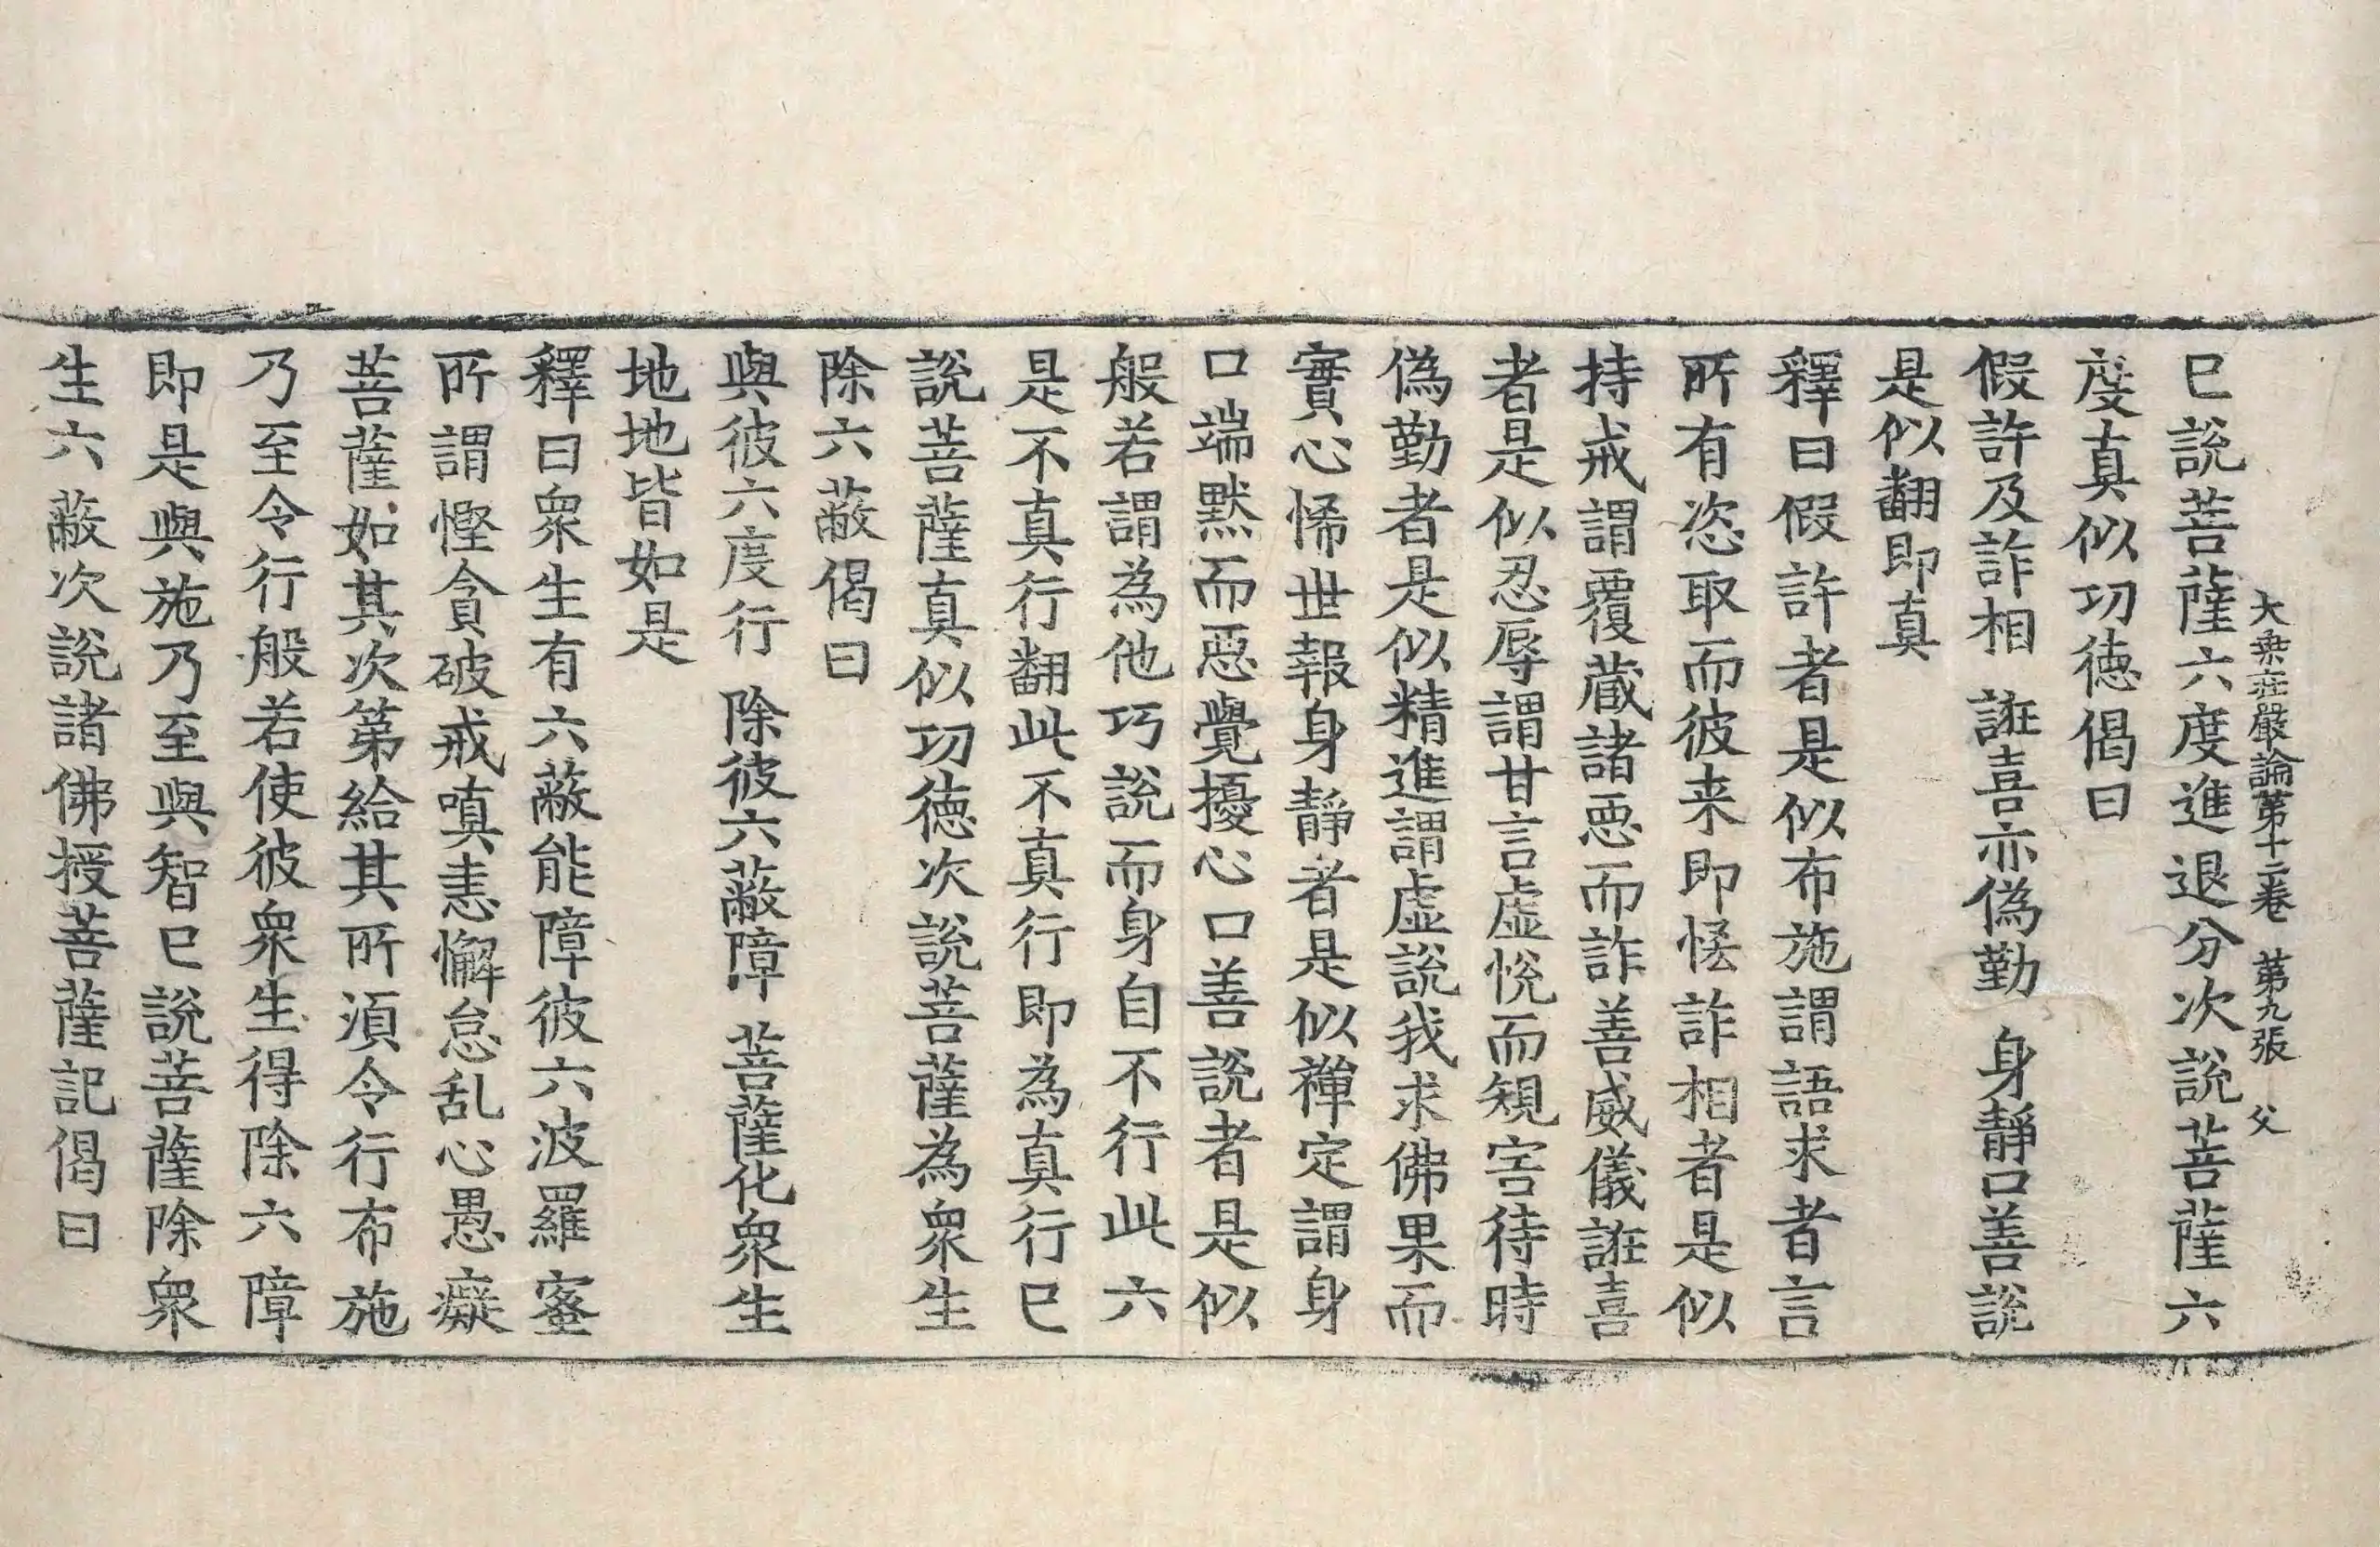 大乗荘嚴論苐十二卷　苐九張　父
已說菩薩六度進退分次說菩薩六
度真似㓛徳偈曰
假許及詐相　誑喜亦偽勤　身靜口善說
是似翻即真
釋曰假許者是似布施謂語求者言
所有恣取而彼来即恡詐相者是似
持戒謂覆蔵諸惡而詐善威儀誑喜
者是似忍辱謂甘言虛悅而䂓害待時
偽勤者是似精進謂虛說我求佛果而
實心悕世報身靜者是似禪定謂身
口端默而惡覺擾心口善說者是似
般若謂為他巧說而身自不行此六
是不真行翻此不真行即為真行已
說菩薩真似㓛徳次說菩薩為衆生
除六蔽偈曰
與彼六度行　除彼六蔽障　菩薩化衆生
地地皆如是
釋曰衆生有六蔽能障彼六波羅蜜
所謂慳貪破戒嗔恚懈怠乱心愚癡
菩薩如其次苐給其所須令行布施
乃至令行般若使彼衆生得除六障
即是與施乃至與智已說菩薩除衆
生六蔽次說諸佛授菩薩記偈曰